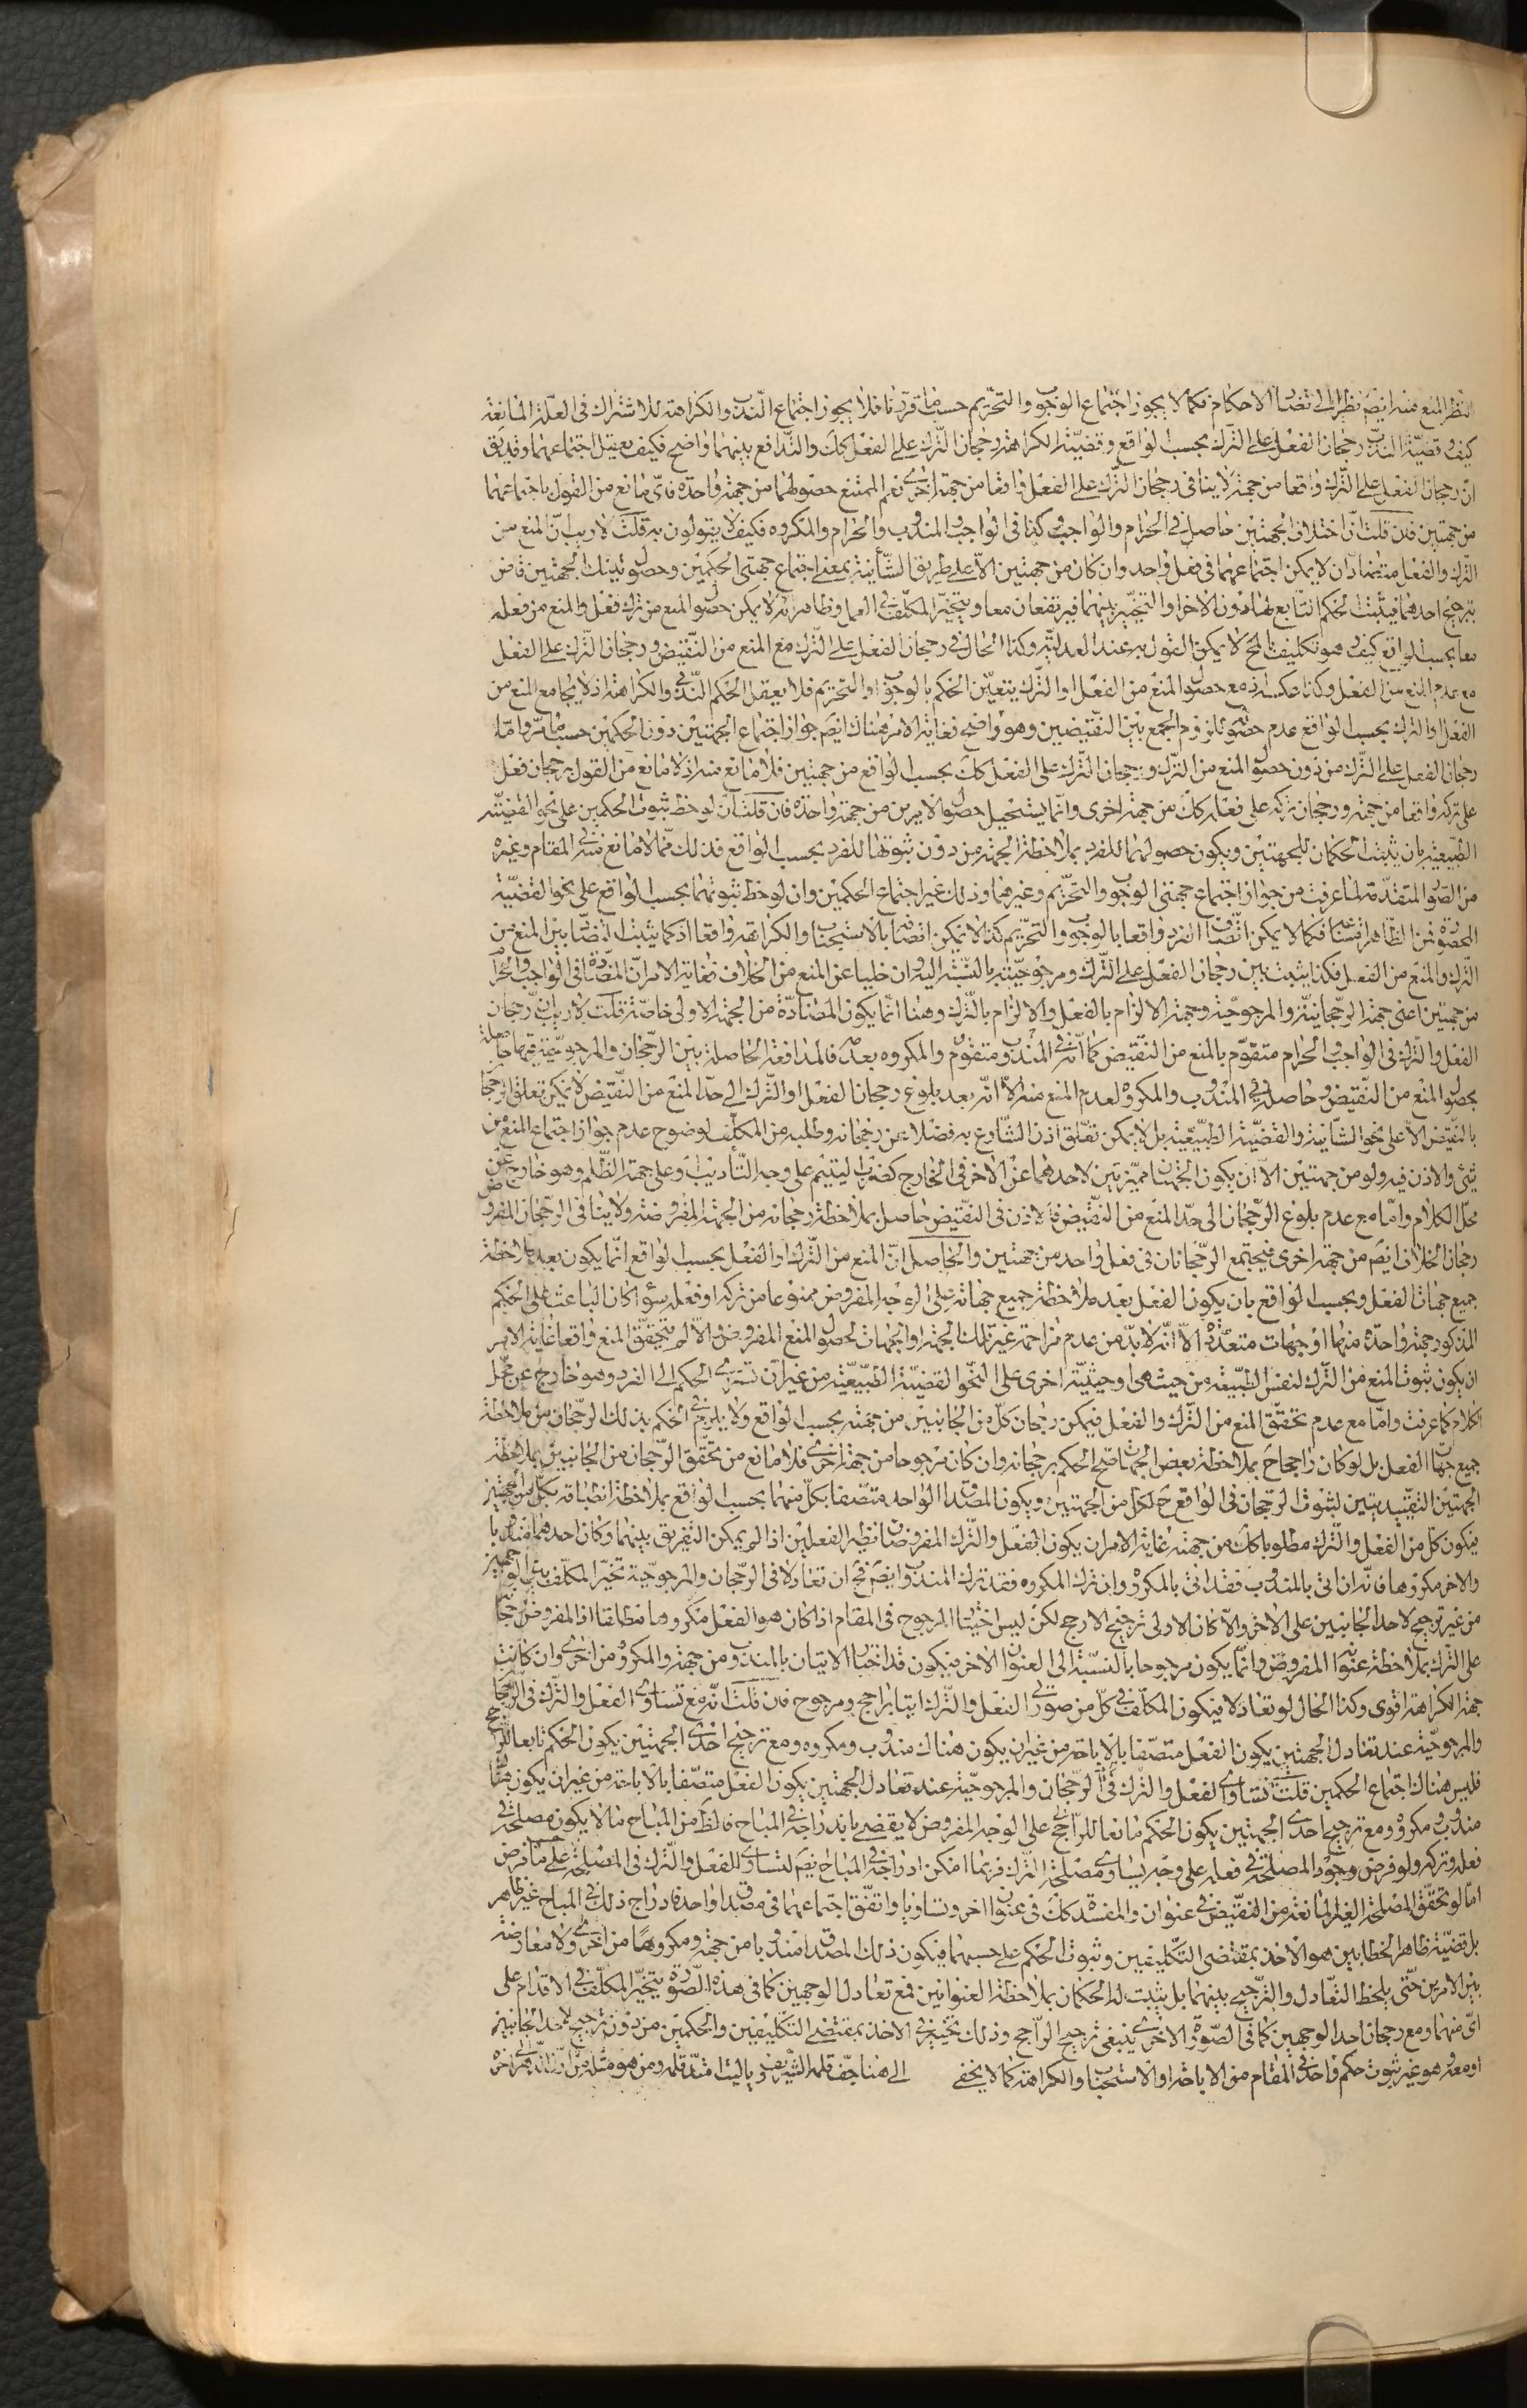 النظر المنع منه ايضم نظرا الى تضاد الاحكام فكما لا يجوز اجتماع الوجوب والتحريم حسب ما قررنا فلا يجوز اجتماع الندب والكراهة للاشتراك فى العلة المانعة
كيف وقضية الندب رجحان الفعل على الترك بحسب الواقع وقضية الكراهة رجحان الترك على الفعل كك والتدافع بينهما واضح فكيف يعقل اجتماعهما وقد يق
ان رجحان الفعل على الترك واقعا من جهة لا ينافى رجحان الترك على الفعل واقعا من جهة اخرى نعم الممتنع حصولهما من جهة واحدة فاى مانع من القول باجتماعهما
من جهتين فان قلت ان اختلاف الجهتين حاصل فى الحرام والواجب وكذا فى الواجب والمندوب والحرام والمكروه فكيف لا يقولون به قلت لا ريب ان المنع من
الترك والفعل متضادان لا يمكن اجتماعهما فى فعل واحد وان كان من جهتين الا على طريق الشأنية بمعنى اجتماع جهتى الحكمين وحصول تينك الجهتين فاما ان
يترجح احدهما فيثبت الحكم التابع لها دون الاخر او التخيير بينهما فيرتفعان معا ويتخير المكلف فى العمل وظاهر انه لا يمكن حصول المنع من ترك فعل والمنع من فعله
معا بحسب الواقع كيف وهو تكليف بالمح لا يمكن القول به عند العدلية وكذا الحال فى رجحان الفعل على الترك مع المنع من النقيض ورجحان الترك على الفعل
مع عدم المنع من الفعل وكذا عكسه اذ مع حصول المنع من الفعل او الترك يتعين الحكم بالوجوب او التحريم فلا يعقل الحكم الندبى والكراهة اذ لا يجامع المنع من
الفعل او الترك بحسب الواقع عدم حصوله للزوم الجمع بين النقيضين وهو واضح فغاية الامر هناك ايضم جواز اجتماع الجهتين دون الحكمين حسب ما مر واما
رجحان الفعل على الترك من دون حصول المنع من الترك ورجحان الترك على الفعل كك بحسب الواقع من جهتين فلا مانع منه اذ لا مانع من القول برجحان فعل
على تركه واقعا من جهة ورجحان تركه على فعله كك من جهة اخرى وانما يستحيل حصول الامرين من جهة واحدة فان قلت ان لوحظ ثبوت الحكمين على نحو القضية
الطبيعية بان يثبت الحكمان للجهتين ويكون حصولهما للفرد بملاحظة الجهة من دون ثبوتها للفرد بحسب الواقع فذلك مما لا مانع منه فى المقام وغيره
من الصور المتقدمة لما عرفت من جواز اجتماع جهتى الوجوب والتحريم وغيرهما وذلك غير اجتماع الحكمين وان لوحظ ثبوتهما بحسب الواقع على نحو القضية
المحصورة فمن الظاهر فساده فكما لا يمكن اتصاف الفرد واقعا بالوجوب والتحريم كذا لا يمكن اتصافه بالاستحباب والكراهة واقعا اذ كما يثبت التضاد بين المنع من
الترك والمنع من الفعل فكذا يثبت بين رجحان الفعل على الترك ومرجوحيته بالنسبة اليه وان خليا عن المنع من الخلاف فغاية الامر ان المضادة فى الواجب والحرام
من جهتين اعنى جهة الرجحانية والمرجوحية وجهة الالزام بالفعل والالزام بالترك وهنا انما يكون المضادة من الجهة الاولى خاصة قلت لا ريب ان رجحان
الفعل والترك فى الواجب والحرام متقوم بالمنع من النقيض كما انه فى المندوب متقوم والمكروه بعدمه فالمدافعة الحاصلة بين الرجحان والمرجوحية فيهما حاصلة
بحصول المنع من النقيض وحاصلة فى المندوب والمكروه لعدم المنع منه الا انه بعد بلوغ رجحان الفعل او الترك الى حد المنع من النقيض لا يمكن تعلق الرجحان
بالنقيض الا على نحو الشأنية والقضية الطبيعية بل لا يمكن تعلق اذن الشارع به فضلا عن رجحانه وطلبه من المكلف لوضوح عدم جواز اجتماع المنع من
شئ والاذن فيه ولو من جهتين الا ان يكون الجهتان مميزتين لاحدهما عن الاخر فى الخارج كضرب اليتيم على وجه التأديب وعلى جهة الظلم وهو خارج عن
محل الكلام واما مع عدم بلوغ الرجحان الى حد المنع من النقيض فالاذن فى النقيض حاصل بملاحظة رجحانه من الجهة المفروضة ولا ينافى الرجحان المفروض
رجحان الخلاف ايضم من جهة اخرى فيجتمع الرجحانان فى فعل واحد من جهتين والحاصل ان المنع من الترك او الفعل بحسب الواقع انما يكون بعد ملاحظة
جميع جهات الفعل وبحسب الواقع بان يكون الفعل بعد ملاحظة جميع جهاته على الوجه المفروض ممنوعا من تركه او فعله سواء كان الباعث على الحكم
المذكور جهة واحدة منها او جهات متعددة الا انه لا بد من عدم مزاحمة غير تلك الجهة او الجهات لحصول المنع المفروض والا لم يتحقق المنع واقعا غاية الامر
ان يكون ثبوت المنع من الترك لنفس الطبيعة من حيث هى او حيثية اخرى على النحو القضية الطبيعية من غير ان تسرى الحكم الى الفرد وهو خارج عن محل
الكلام كما عرفت واما مع عدم تحقق المنع من الترك والفعل فيمكن رجحان كل من الجانبين من جهته بحسب الواقع ولا يلزم فى الحكم بذلك الرجحان من ملاحظة
جميع جهات الفعل بل لو كان راجحا بملاحظة بعض الجهات صح الحكم برجحانه وان كان مرجوحا من جهة اخرى فلا مانع من تحقق الرجحان من الجانبين بملاحظة
الجهتين التقييديتين لثبوت الرجحان فى الواقع ح لكل من الجهتين ويكون المصداق الواحد متصفا بكل منهما بحسب الواقع بملاحظة انطباقه بكل من الجهتين
فيكون كل من الفعل والترك مطلوبا كك من جهته غاية الامر ان يكون الفعل والترك المفروضان نظير الفعلين اذا لم يمكن التفريق بينهما وكان احدهما مندوبا
والاخر مكروها فانه ان اتى بالمندوب فقد اتى بالمكروه وان ترك المكروه فقد ترك المندوب وايضم فح ان تعادلا فى الرجحان والمرجوحية تخير المكلف بين الوجهين
من غير ترجيح لاحد الجانبين على الاخر والا كان الاولى ترجيح الارجح لكن ليس اختيار المرجوح فى المقام اذا كان هو الفعل مكروها مطلقا اذ المفروض رجحانه
على الترك بملاحظة عنوانه المفروض وانما يكون مرجوحا بالنسبة الى العنوان الاخر فيكون قد اختار الاتيان بالمندوب من جهة والمكروه من اخرى وان كانت
جهة الكراهة اقوى وكذا الحال لو تعادلا فيكون المكلف فى كل من صورتى الفعل والترك اتيا براجح ومرجوح فان قلت انه مع تساوى الفعل والترك فى الرجحان
والمرجوحية عند تعادل الجهتين يكون الفعل متصفا بالاباحة من غير ان يكون هناك مندوب ومكروه ومع ترجيح احدى الجهتين يكون الحكم تابعا للراجح
فليس هناك اجتماع الحكمين قلت تساوى الفعل والترك فى الرجحان والمرجوحية عند تعادل الجهتين يكون الفعل متصفا بالاباحة من غير ان يكون هناك
مندوب ومكروه ومع ترجيح احدى الجهتين يكون الحكم مانعا للراجح على الوجه المفروض لا يقضى باندراجه فى المباح فالظ من المباح ما لا يكون مصلحة فى
فعله وتركه ولو فرض وجود المصلحة فى فعله على وجه يساوى مصلحة الترك فربما امكن ادراجه فى المباح ايضم لتساوى للفعل والترك فى المصلحة على ما فرض
اما لو تحقق المصلحة الغير المانعة من النقيض فى عنوان والمفسدة كك فى عنوان اخر وتساويا واتفق اجتماعهما فى مصداق واحد فادراج ذلك فى المباح غير ظاهر
بل قضية ظاهر الخطابين هو الاخذ بمقتضى التكليفين وثبوت الحكم على حسبهما فيكون ذلك المصداق مندوبا من جهة ومكروها من اخرى ولا معارضة
بين الامرين حتى يلحظ التعادل والترجيح بينهما بل يثبت له الحكمان بملاحظة العنوانين فمع تعادل الوجهين كما فى هذه الصورة يتخير المكلف فى الاقدام على
اى منهما ومع رجحان احد الوجهين كما فى الصورة الاخرى ينبغى ترجيح الراجح وذلك تخيير فى الاخذ بمقتضى التكليفين والحكمين من دون ترجيح لاحد الجانبين
او معه وهو غير ثبوت حكم واحد فى المقام من الاباحة او الاستحباب او الكراهة كما لا يخفى الى هنا جف قلمه الشريف